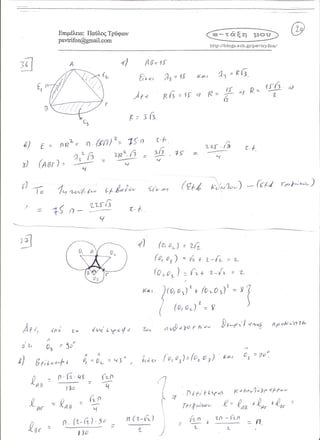 Επιμέλεια: Παύλος Τρύφων
pavtrifon@gmail.com
α-τάξη μου
http://blogs.sch.gr/pavtryfon/
36
α) ΑΒ=15
Είναι λ₃=15 και λ₃=R√3.
Άρα R√3=15 ⇒ R = 15/√3 ⇒ R = 15√3/3 ⇒
R = 5√3.
β) Ε = πR² = π·(5√3)² = 75π τ.μ.
γ) (ΑΒΓ) = λ₃²√3/4 = 3R²√3/4 = 3√3/4 · 75 = 225·√3/4 τ.μ.
δ) Το ζητούμενο εμβαδόν είναι (Εμβ κύκλου) - (Εμβ τριγώνου)
= 75π - 225√3/4 τ.μ.
37
α) (Ο₁Ο₂) = 2√2
(Ο₁Ο₃) = √2+2-√2 = 2
(Ο₂Ο₃) = √2+2-√2 = 2
και (Ο₁Ο₃)²+(Ο₂Ο₃)² = 8
(Ο₁Ο₂)² = 8
Άρα, από το αντίστροφο του πυθαγορείου θεωρήματος προκύπτει
ότι Ο₃ = 90°
β) Ο₁ = Ο₂ = 45°, (Ο₁Ο₃)=(Ο₂Ο₃) και Ο₃=90°
ℓΑΒ = π·√2·45/180 = √2π/4
ℓΑΓ = ℓΑΒ = √2π/4
ℓΒΓ = π·(2-√2)·90/180 = π(2-√2)/2
⇒ Περίμετρος καμπυλόγραμμου
τριγώνου ℓ = ℓΑΒ+ℓΑΓ+ℓΒΓ =
= √2π/2 + 2π-√2π/2 = π.